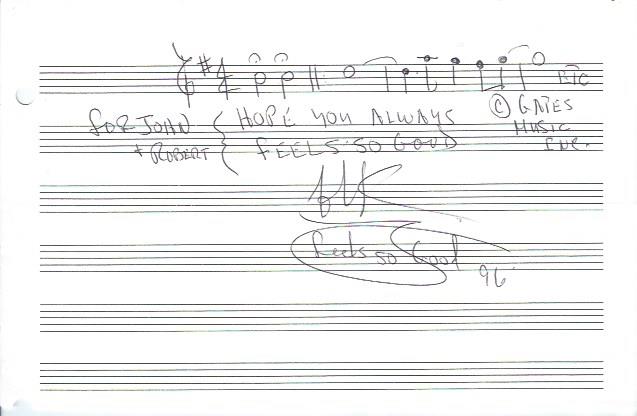 ETC
FOR JOHN { HOPE YOU ALWAYS © GATES
+ ROBERT { FEELS SO GOOD MUSIC
INC.
Feels so Good
96